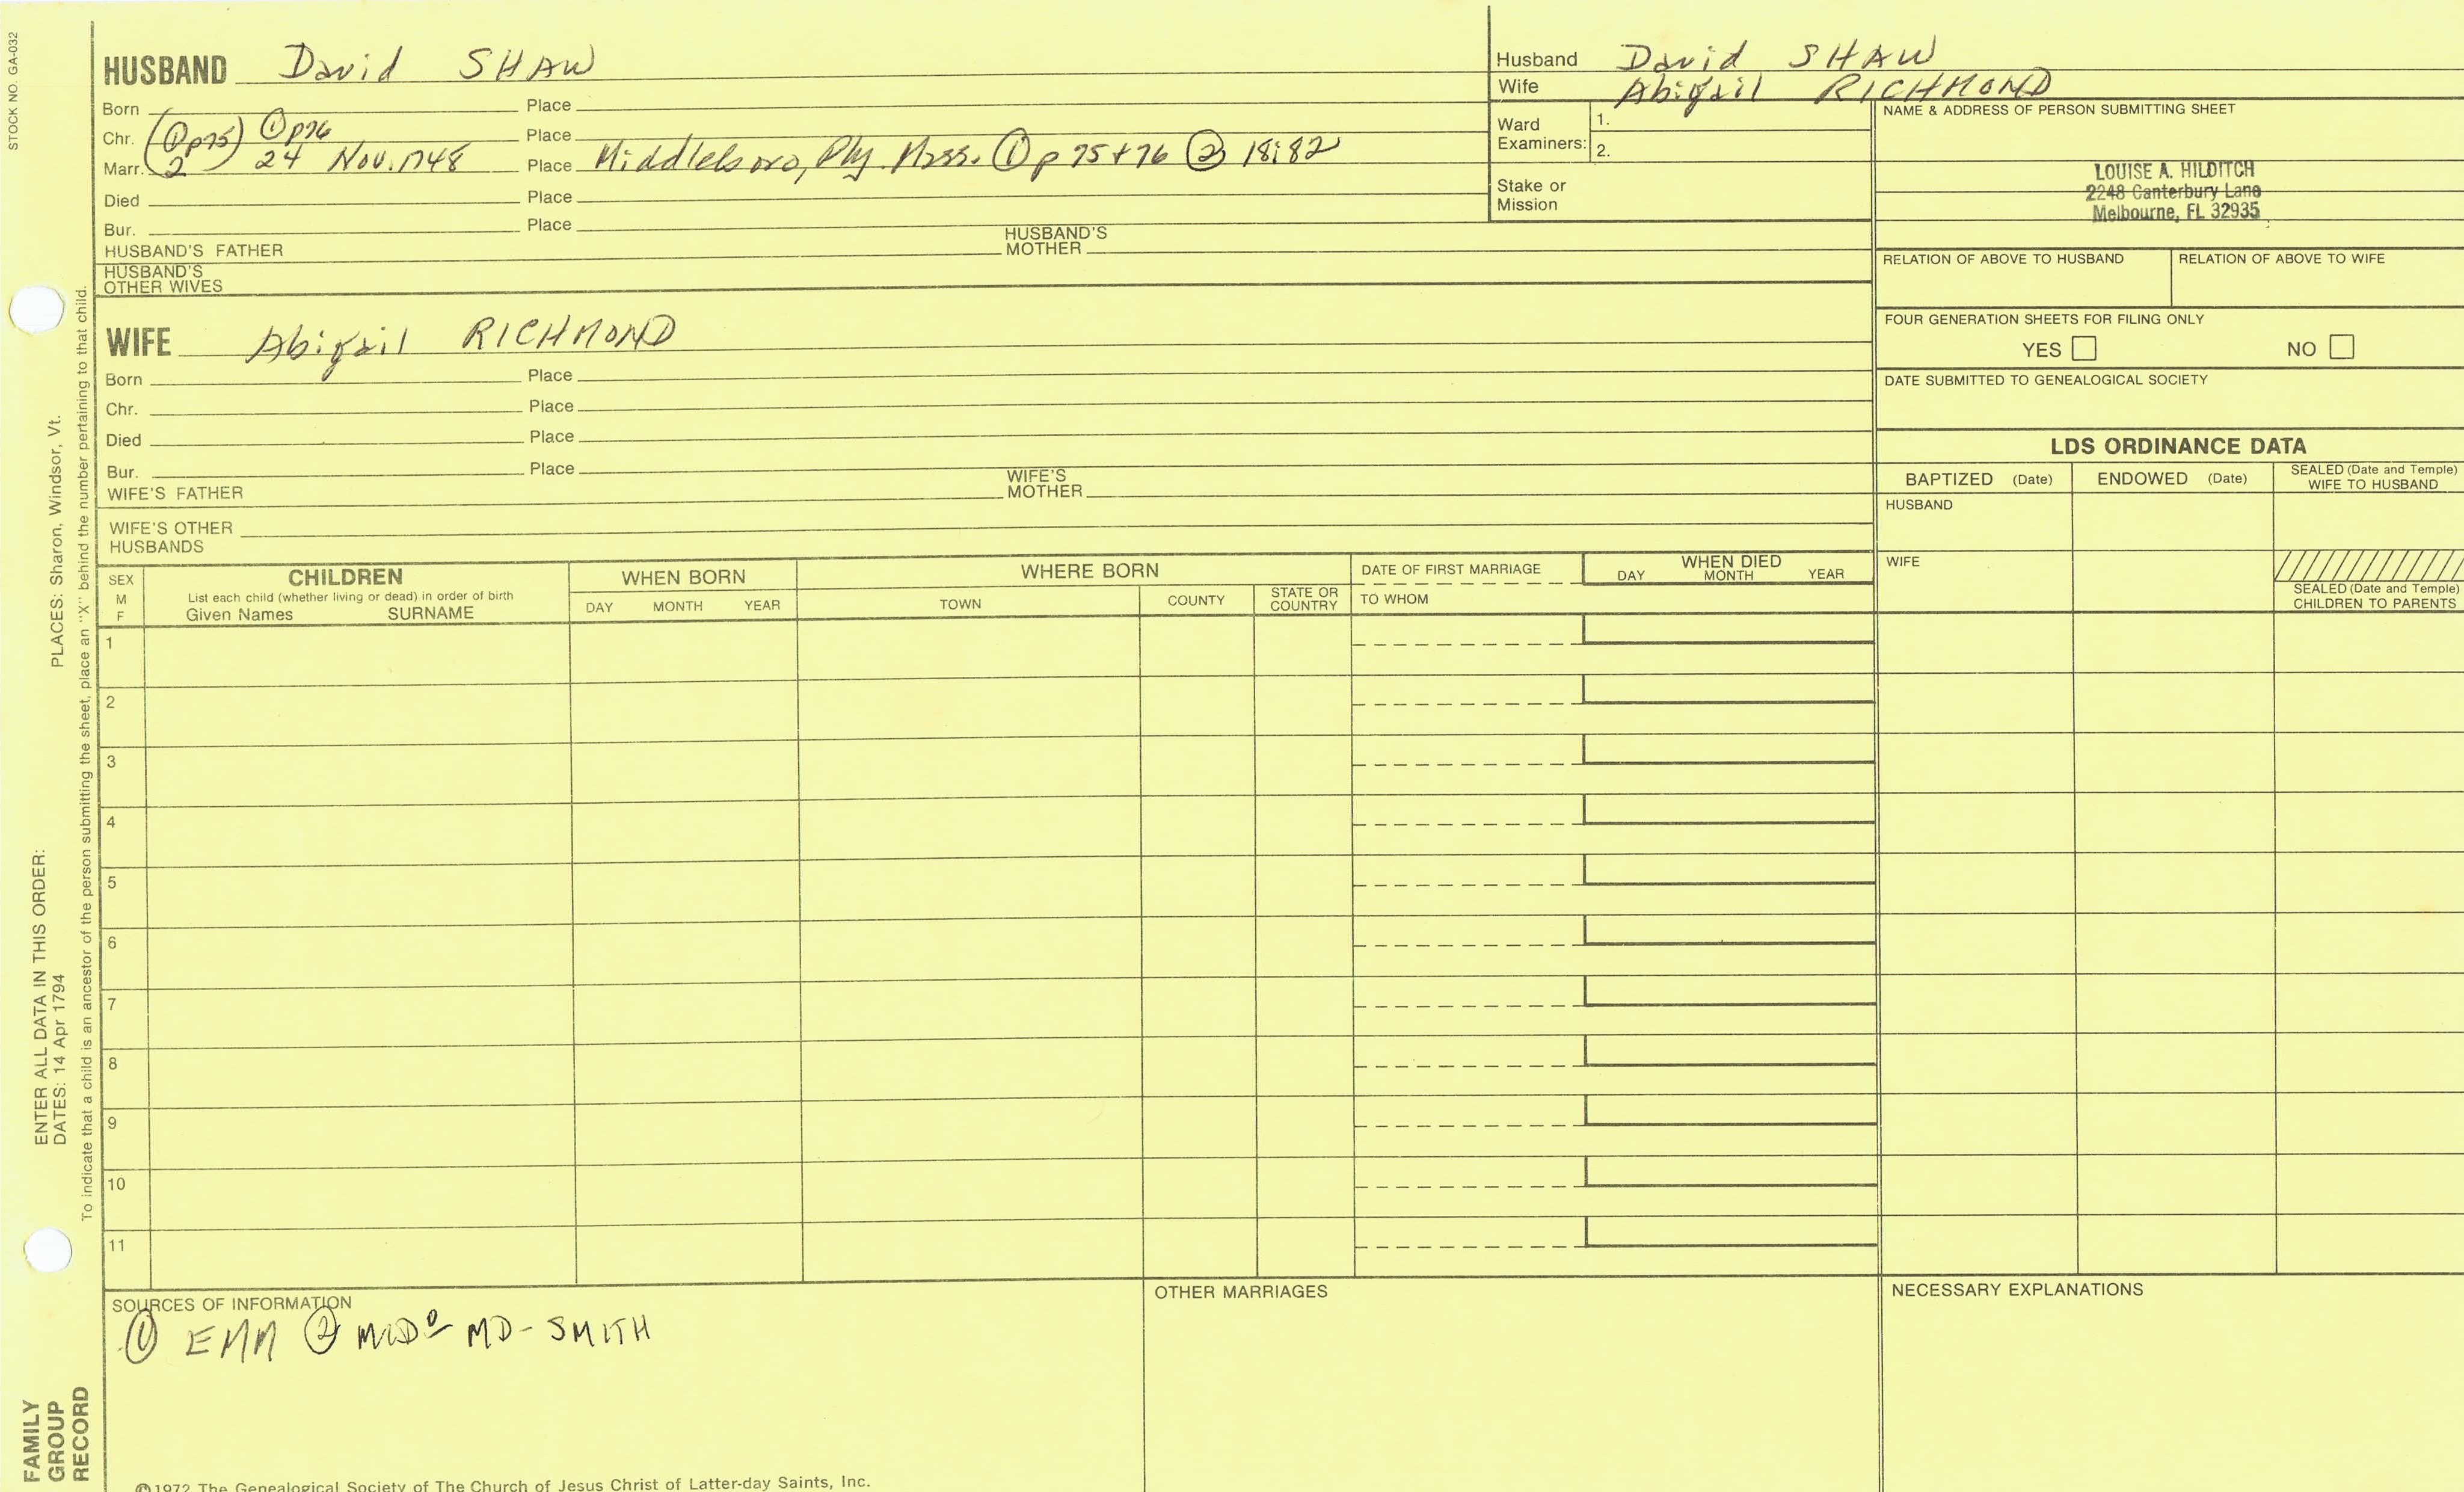 STOCK NO. GA-032
HUSBAND David SHAW
Born Place
Chr. (① p75) ① p76 Place
Marr. 2 24 Nov. 1748 Place Middleboro, Ply. Mass. ① p 75 + 76 ② 18:82
Died Place
Bur. Place
HUSBAND'S FATHER HUSBAND'S MOTHER
HUSBAND'S OTHER WIVES
Husband David SHAW
Wife Abigail RICHMOND
Ward Examiners: 1.
2.
Stake or Mission
NAME & ADDRESS OF PERSON SUBMITTING SHEET
LOUISE A. HILDITCH
2248 Canterbury Lane
Melbourne, FL 32935
RELATION OF ABOVE TO HUSBAND RELATION OF ABOVE TO WIFE
FOUR GENERATION SHEETS FOR FILING ONLY
YES NO
DATE SUBMITTED TO GENEALOGICAL SOCIETY
WIFE Abigail RICHMOND
Born Place
Chr. Place
Died Place
Bur. Place
WIFE'S FATHER WIFE'S MOTHER
WIFE'S OTHER HUSBANDS
LDS ORDINANCE DATA
BAPTIZED (Date) ENDOWED (Date) SEALED (Date and Temple) WIFE TO HUSBAND
HUSBAND
WIFE
SEALED (Date and Temple) CHILDREN TO PARENTS
SEX M F
CHILDREN
List each child (whether living or dead) in order of birth
Given Names SURNAME
WHEN BORN
DAY MONTH YEAR
WHERE BORN
TOWN COUNTY STATE OR COUNTRY
DATE OF FIRST MARRIAGE
TO WHOM
WHEN DIED
DAY MONTH YEAR
1
2
3
4
5
6
7
8
9
10
11
SOURCES OF INFORMATION
① EMM ② MD- SMITH
OTHER MARRIAGES
NECESSARY EXPLANATIONS
©1972 The Genealogical Society of The Church of Jesus Christ of Latter-day Saints, Inc.
ENTER ALL DATA IN THIS ORDER:
DATES: 14 Apr 1794
PLACES: Sharon, Windsor, Vt.
To indicate that a child is an ancestor of the person submitting the sheet, place an "X" behind the number pertaining to that child.
FAMILY
GROUP
RECORD